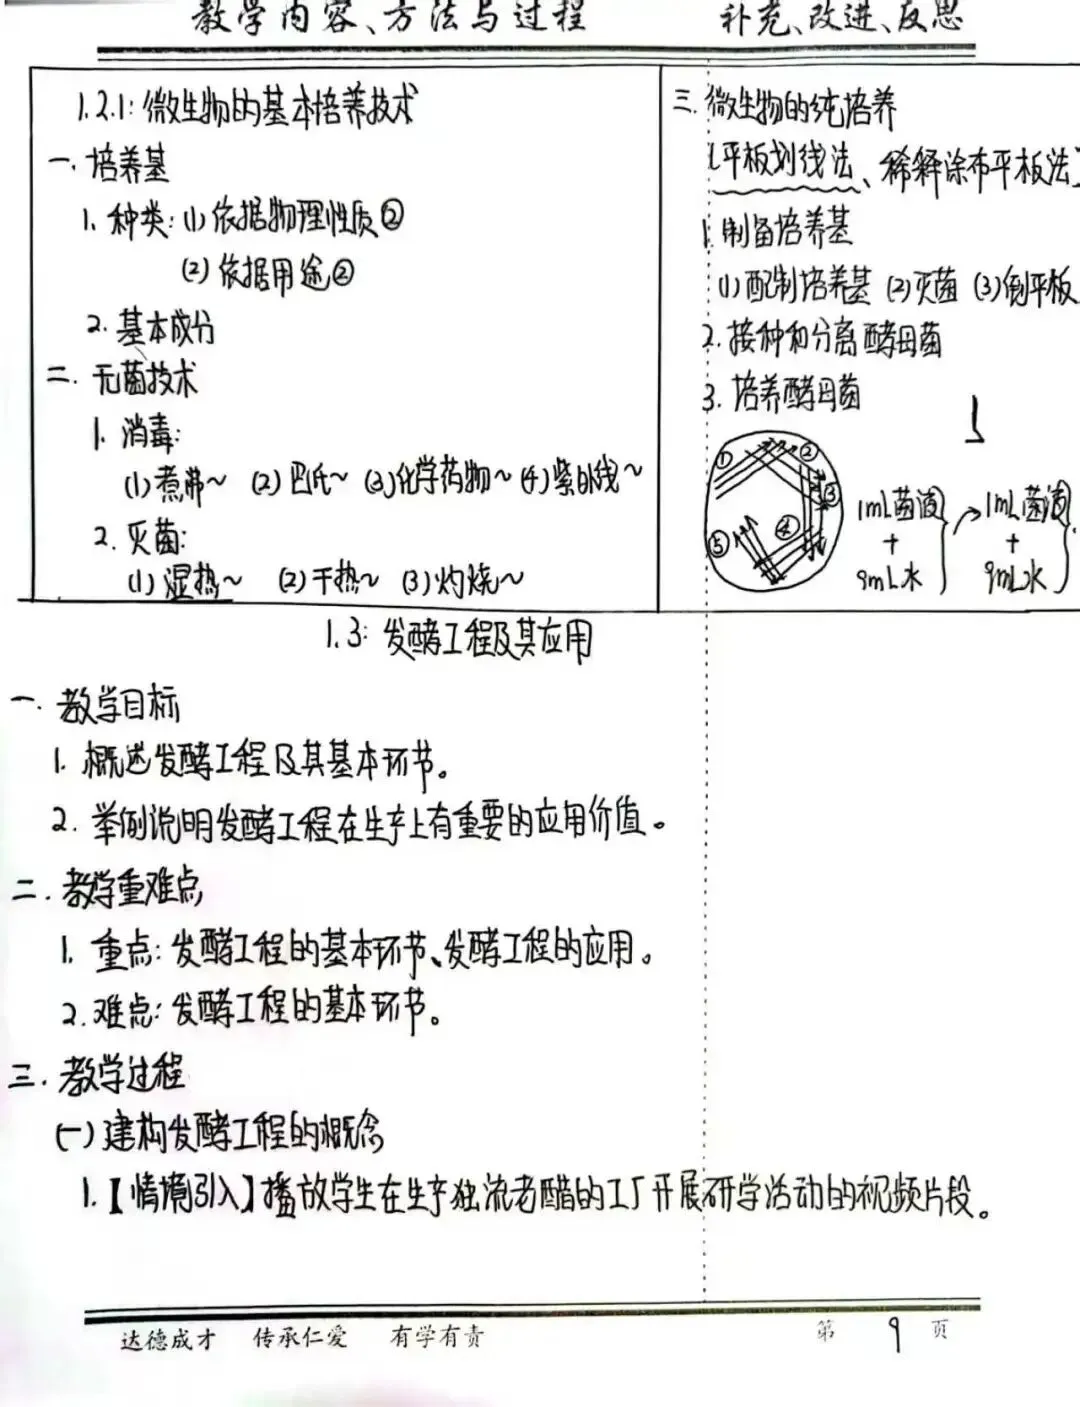 教学内容、方法与过程
补充、改进、反思
1.2.1：微生物的基本培养技术
一. 培养基
1. 种类：(1)依据物理性质②
(2)依据用途②
2. 基本成分
二. 无菌技术
1. 消毒：
(1)煮沸~ (2)巴氏~ (3)化学药物~ (4)紫外线~
2. 灭菌：
(1)湿热~ (2)干热~ (3)灼烧~
三. 微生物的纯培养
平板划线法、稀释涂布平板法
1. 制备培养基
(1)配制培养基 (2)灭菌 (3)倒平板
2. 接种和分离酵母菌
3. 培养酵母菌
① ② ③ ④ ⑤
1mL菌液
+
9mL水
1mL菌液
+
9mL水
1.3：发酵工程及其应用
一. 教学目标
1. 概述发酵工程及其基本环节。
2. 举例说明发酵工程在生产上有重要的应用价值。
二. 教学重难点
1. 重点：发酵工程的基本环节、发酵工程的应用。
2. 难点：发酵工程的基本环节。
三. 教学过程
(一) 建构发酵工程的概念
1.【情境引入】播放学生在生产独流老醋的工厂开展研学活动的视频片段。
达德成才 传承仁爱 有学有责
第 9 页